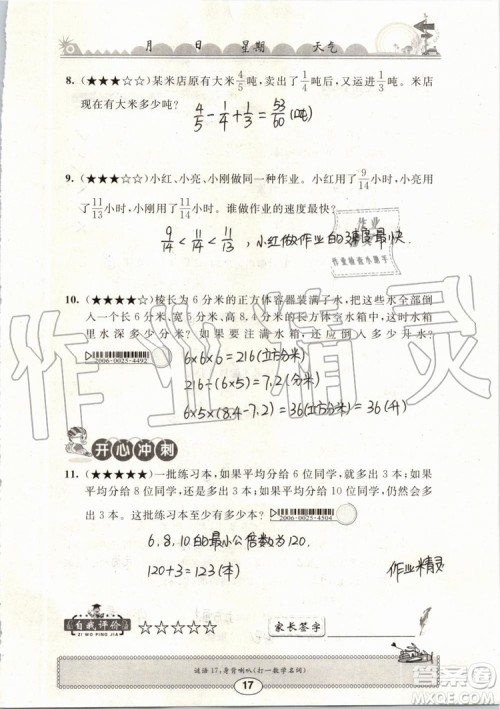 月 日 星期 天气
8. (★★★☆☆)某米店原有大米4/5吨，卖出了1/4吨后，又运进1/3吨。米店
现在有大米多少吨？
4/5-1/4+1/3=53/60(吨)
9. (★★★☆☆)小红、小亮、小刚做同一种作业。小红用了9/14小时，小亮用
了11/13小时，小刚用了11/14小时。谁做作业的速度最快？
作业
作业检查小助手
9/14<11/14<11/13，小红做作业的速度最快
10. (★★★★☆)棱长为6分米的正方体容器装满了水，把这些水全部倒
入一个长6分米、宽5分米、高8.4分米的长方体空水箱中，这时水箱
里水深多少分米？如果要注满水箱，还应注入多少升水？
2006-0025-4492
6×6×6=216(立方分米)
216÷(6×5)=7.2(分米)
6×5×(8.4-7.2)=36(立方分米)=36(升)
作业精灵
开心冲刺
11. (★★★★★)一批练习本，如果平均分给6位同学，就多出3本；如果
平均分给8位同学，也多出3本；如果平均分给10位同学，仍然会多
出3本。这批练习本至少有多少本？
2006-0025-4504
6,8,10的最小公倍数为120.
120+3=123(本)
作业精灵
自我评价 ☆☆☆☆☆ 家长签字
ZI WO PING JIA
谜语17：身背喇叭(打一数学名词)
17
答案圈